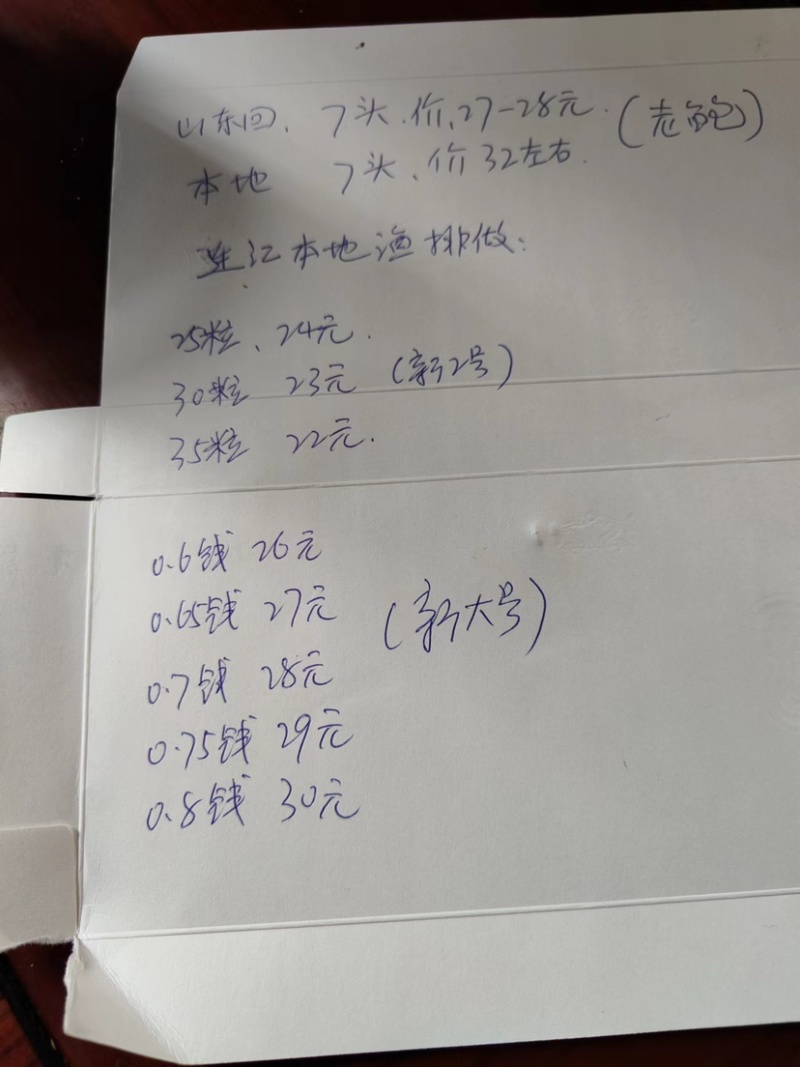 山东回、7头、价、27-28元. (老鲍)
本地 7头、价32左右.
连江本地渔排做:
25粒、24元.
30粒 23元 (新2号)
35粒 22元.
0.6钱 26元
0.65钱 27元 (新大号)
0.7钱 28元
0.75钱 29元
0.8钱 30元